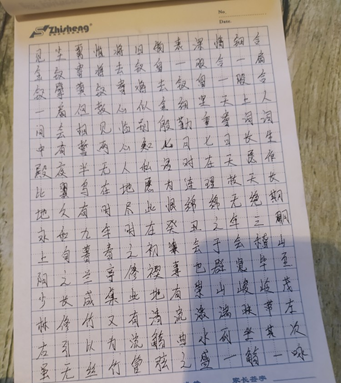 Zhisheng
No.
Date.
见尘雾惟将旧物表深情钿合
金钗寄将去钗留一股合一扇
钗擘寄将去钗留一股合
一扇但教心似金钿坚天上人
间会相见临别殷勤重寄词词
中有誓两心知七月七日长生
殿夜半无人私语时在天愿作
比翼鸟在地愿为连理枝天长
地久有时尽此恨绵绵无绝期
永和九年时在癸丑之年三
上旬暮春之初会于会稽山
阴之兰亭修禊事也群贤毕至
少长咸集此地有崇山峻岭茂
林修竹又有清流激湍映带左
右引以为流觞曲水列坐其次
虽无丝竹管弦之盛一觞一咏